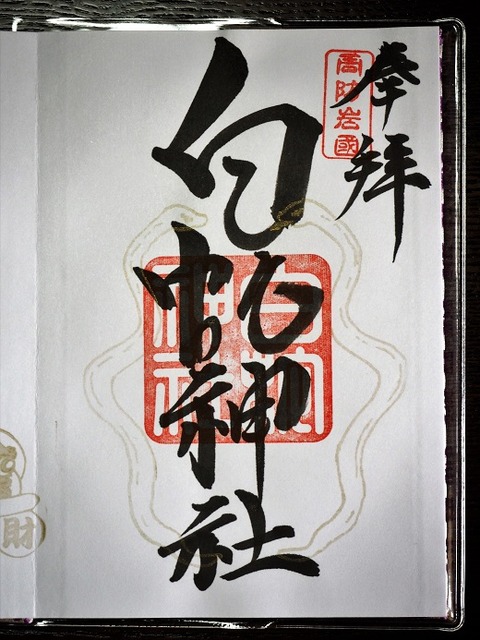 奉拝
周防岩國
白蛇神社
白蛇神社
財